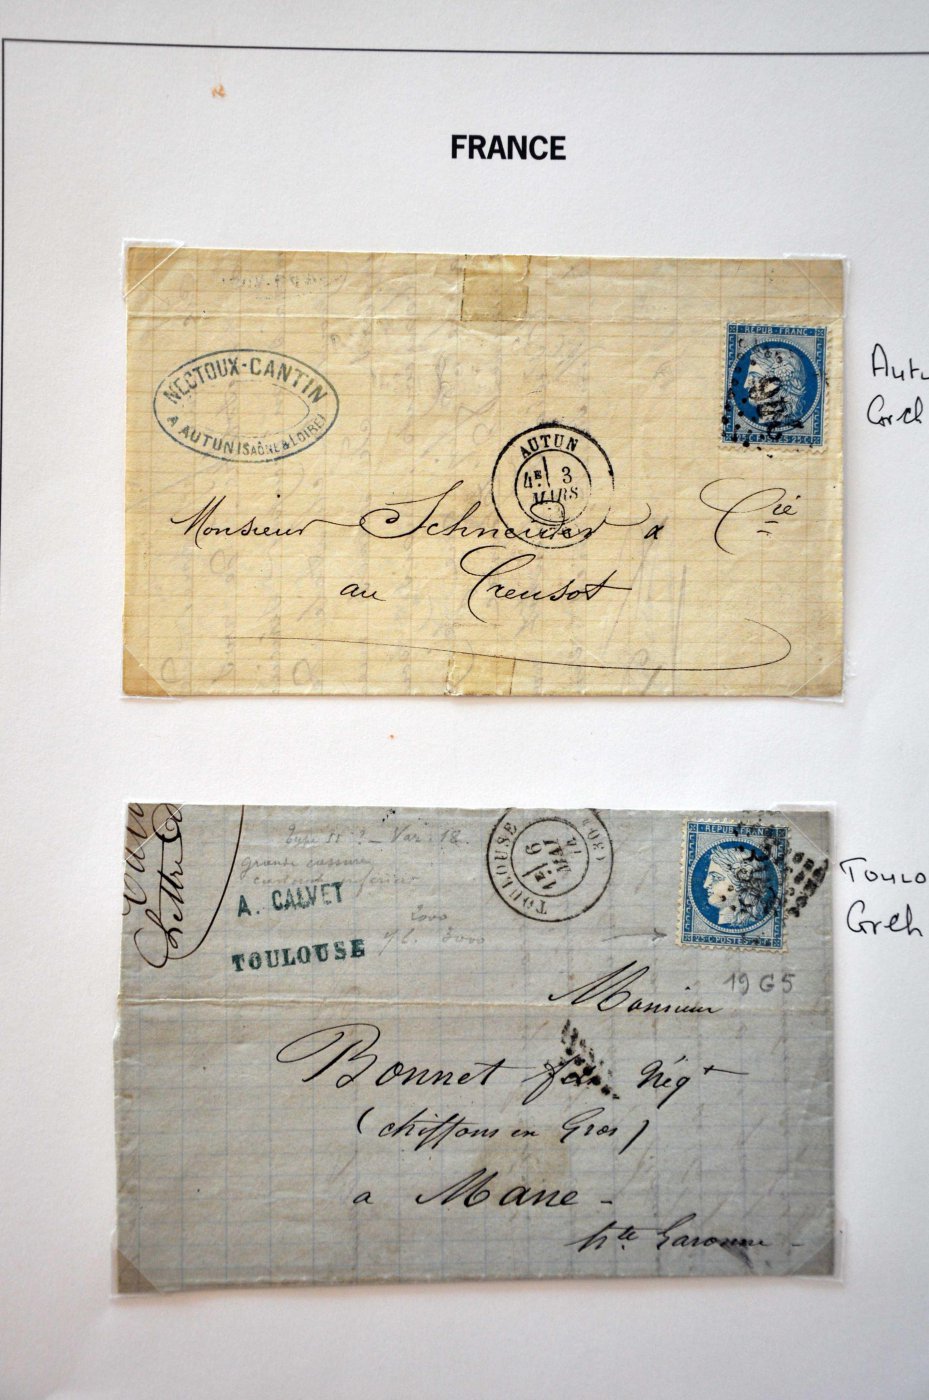 FRANCE
NECTOUX-CANTIN
A AUTUN (SAÔNE & LOIRE)
REPUB FRANC
226
25 C
AUTUN
4E 3
MARS
Autu
Corch
Monsieur Schneider & Cie
au Creusot
Type II ? - Var. 18.
Grande cassure
A. CALVET
TOULOUSE
2000
3000
TOULOUSE
6
MAI
74
(30)
REPUB FRANC
25 C POSTES
19 G5
Toulo
Grch
Monsieur
Bonnet Négt
(chiffons en Gros)
a Mane -
hte Garonne -